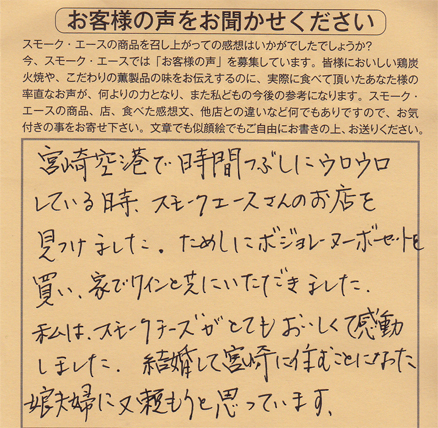 お客様の声をお聞かせください
スモーク・エースの商品を召し上がっての感想はいかがでしたでしょうか?
今、スモーク・エースでは「お客様の声」を募集しています。皆様においしい鶏炭
火焼や、こだわりの薫製品の味をお伝えするのに、実際に食べて頂いたあなた様の
率直なお声が、何よりの力となり、また私どもの今後の参考になります。スモーク・
エースの商品、店、食べた感想文、他店との違いなど何でもありですので、お気
付きの事をお寄せ下さい。文章でも似顔絵でもご自由にお書きの上、お送りください。
宮崎空港で時間つぶしにウロウロ
している時、スモークエースさんのお店を
見つけました。ためしにボジョレーヌーボーセットを
買い、家でワインと共にいただきました。
私は、スモークチーズがとてもおいしくて感動
しました。結婚して宮崎に住むことになった
娘夫婦に又頼もうと思っています。